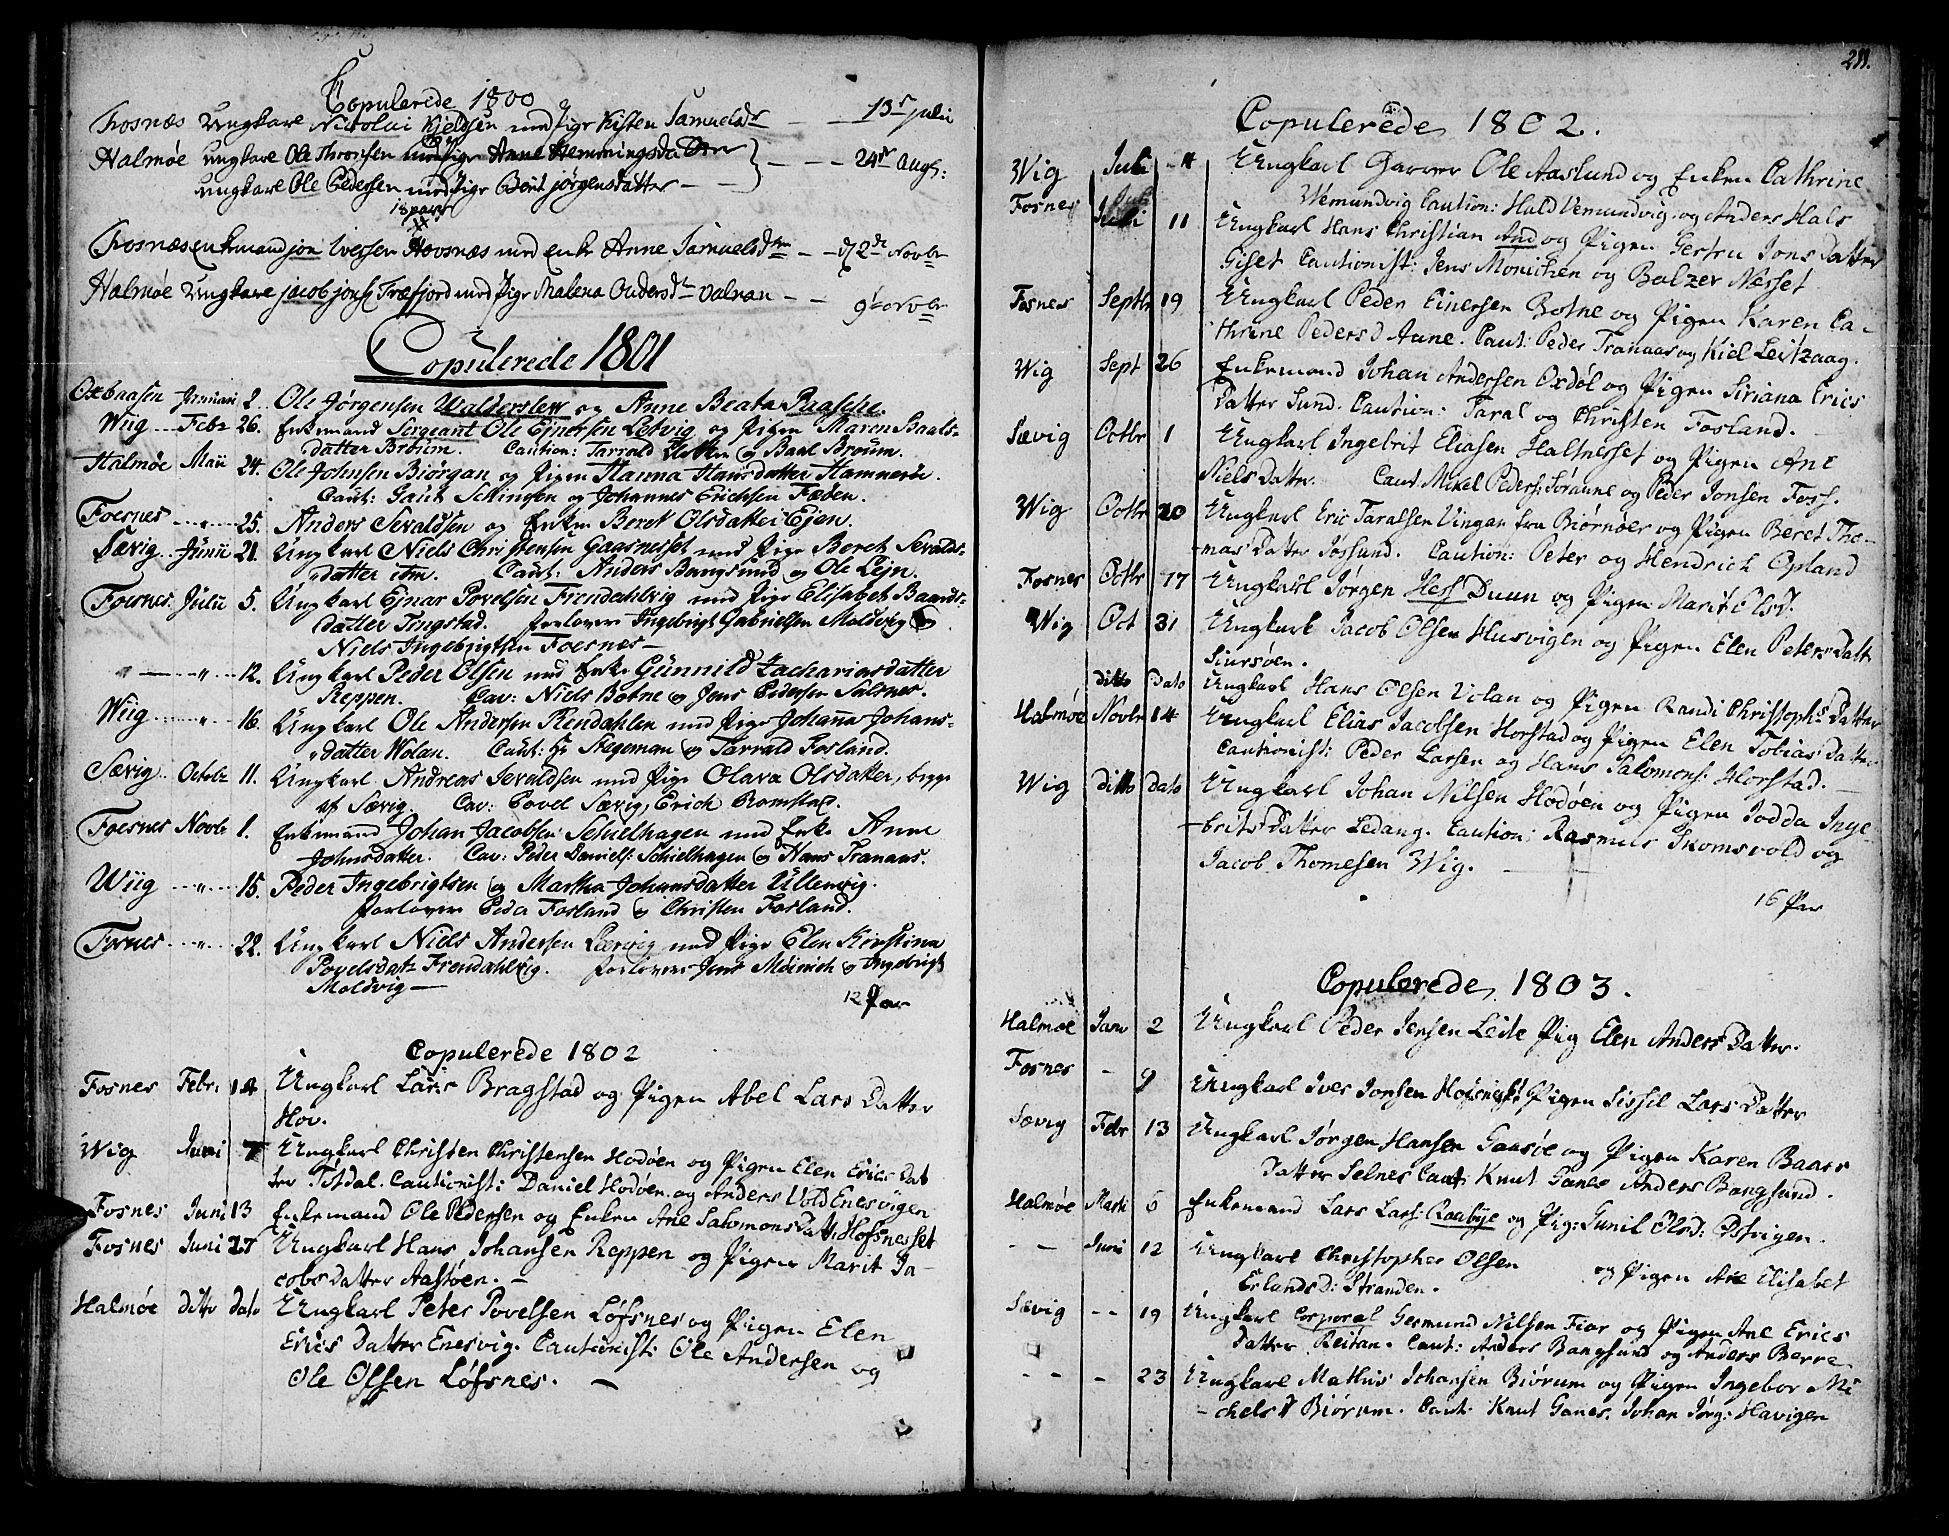 Copulerede 1800
Fosnæs Ungkarl Nicolai Kjeldsen med Pige Kisten Samuelsdr — 13de julii
Halmøe Ungkarl Ole Thronsen med Pige Anne Hemmingsdatter — 24de Augs:
Ungkarl Ole Pedersen med Pige Berit jørgensdatter —
18 par
Fosnæs enkemand jon Iversen Hovsnæs med enke Anne Samuelsdtr — d 2de Novbr
Halmøe Ungkarl jacob jons: Træfjord med Pige Malena Andersdtr Valnan — 9de Novbr
Copulerede 1801
Oxbaasen Januari 2. Ole Jørgensen Walderslew og Anne Beata Paasche.
Wiig Febr 26. Enkemand Sergeant Ole Ejnersen Ledvig og Pigen Maren Baals-
datter Brøum. Caution: Tarrald Kletten og Baal Broum.
Halmøe Maii 24. Ole Johnsen Biørgan og Pigen Hanna Hansdatter Hamnerøe.
Caut: Gaut Schinsøen og Johannes Erichsen Fæden.
Foesnes " 25. Anders Sevaldsen og Enke Beret Olsdatter Ejen.
Sævig Junii 21. Ungkarl Niels Christensen Gaasnesset med Pige Beret Sevalds-
datter ibm. Caut: Anders Bangsund og Ole Lejn.
Foesnes Julii 5. Ungkarl Ejnar Povelsen Frendahlvig med Pige Elisabet Baards-
datter Tingstad. forlover Ingebrigt Gabrielsen Moldvig og
Niels Ingebrigtsen Foesnes —
" — " 12. Ungkarl Peder Olsen med Enke Gunnild Zachariasdatter
Reppen. Cav: Niels Botne og Jens Pedersen Salsnes.
Wiig " 16. Ungkarl Ole Andersen Rendahlen med Pige Johanna Johans-
datter Wolan. Caut: Hr Stegeman og Tarrald Fosland.
Sævig Octobr 11. Ungkarl Andreas Sevaldsen med Pige Olava Olsdatter, begge
af Sævig. Cav: Povel Sævig, Erich Romstad.
Foesnes Novbr 1. Enkemand Johan Jacobsen Schielhagen med Enke Anne
Johnsdatter. Cav: Peder Daniels: Schielhagen og Hans Tranaas.
Wiig " 15. Peder Ingebrigtsen og Martha Johansdatter Ullenvig.
forlovere Peder Fosland og Christen Fosland.
Fosnes " 22. Ungkarl Niels Andersen Lervig med Pige Elen Kirstina
Povelsdatr Frendahlvig. forlovere Jens Moinich og Ingebrigt
Moldvig —
12 Par
Copulerede 1802
Fosnes Febr. 14 Ungkarl Lars Bragstad og Pigen Abel Lars Datter
Hov.
Wig Juni 7 Ungkarl Christen Christensen Hodøen og Pigen Elen Erics Dat
ter Tisdal. Cautionist: Daniel Hodøen og Anders Vold Enesvigen
Fosnes Juni 13 Enkemand Ole Pedersen og Enken Ane Salomons Datt: Hofsnesset
Fosnes Juni 27 Ungkarl Hans Johansen Reppen og Pigen Marit Ja-
cobs Datter Aastøen. —
Halmøe ditto dato Ungkarl Peter Povelsen Løfsnes og Pigen Elen
Erics Datter Enesvig. Cautionist: Ole Andersen og
Ole Olsen Løfsnes. —
211.
Copulerede 1802.
Wig Juli 4 Ungkarl Garver Ole Aaslund og Enken Cathrine
Vemundvig Caution: Hald Vemundvig og Anders Hals
Fosnes Juli 11 Ungkarl Hans Christian And og Pigen Gertru Jons Datter
Giset Cautionist: Jens Monichen og Balzer Nesset
Fosnes Septbr 19 Ungkarl Peder Einersen Botne og Pigen Karen Ca-
thrine Peders D Aune. Caut: Peder Tranaas og Kiel Leitzaag.
Wig Sept 26 Enkemand Johan Andersen Oxdøl og Pigen Siriana Erics
Datter Sund. Caution: Taral og Christen Fosland.
Sævig Octbr 1 Ungkarl Ingebrit Eliasen Haltnesset og Pigen Ane
Niels Datter. Caut. Mikel Peders: Søraune og Peder Jonsen Foss.
Wig Octbr 20 Ungkarl Eric Taralsen Vingan fra Biørnøer og Pigen Beret Tho-
mas Datter Jøssund. Caution: Peter og Hendrich Opland
Fosnes Octbr 17 Ungkarl Jørgen Hess Duun og Pigen Marit Olsd.
Wig Oct 31 Ungkarl Jacob Olsen Husvigen og Pigen Elen Peters Datt
Siursøen.
ditto dato Ungkarl Hans Olsen Volan og Pigen Randi Christophs Datter
Halmøe Novbr 14 Ungkarl Elias Jacobsen Horstad og Pigen Elen Tobias Datter
Cautionist: Peder Larsen og Hans Salomons: Horstad. —
Wig ditto dato Ungkarl Johan Nilsen Hodøen og Pigen Jodda Inge-
brits Datter Ledang. Caution: Rasmus Skomsvold og
Jacob Thomesen Wig. —
16 Par
Copulerede 1803.
Halmøe Janv 2 Ungkarl Peder Jensen Leite Pig Elen Anders Datter.
Fosnes - 9 Ungkarl Iver Jonsen Hofsneset Pigen Sissil Lars Datter
Sævig Febr 13 Ungkarl Jørgen Hansen Gaasøe og Pigen Karen Baars
Datter Selnes Caut: Knut Ganes Anders Bangsund.
Halmøe Marti 6 Enkemand Lars Lars: Raabye og Pig: Gunil Olsd: Osvigen.
- - Juni 12 Ungkarl Christopher Olsen og Pigen Ane Elisabet
Erlands D: Stranden.
Sævig - - 19 Ungkarl Corporal Gesmund Nilsen Fiar og Pigen Ane Erics
Datter Reitan. Caut: Anders Bangsund og Anders Berre
- - - 23 Ungkarl Mathis Johansen Biørum og Pigen Ingebor Mi
chels D Biørum. Caut: Knut Ganes. Johan Jørg: Havigen